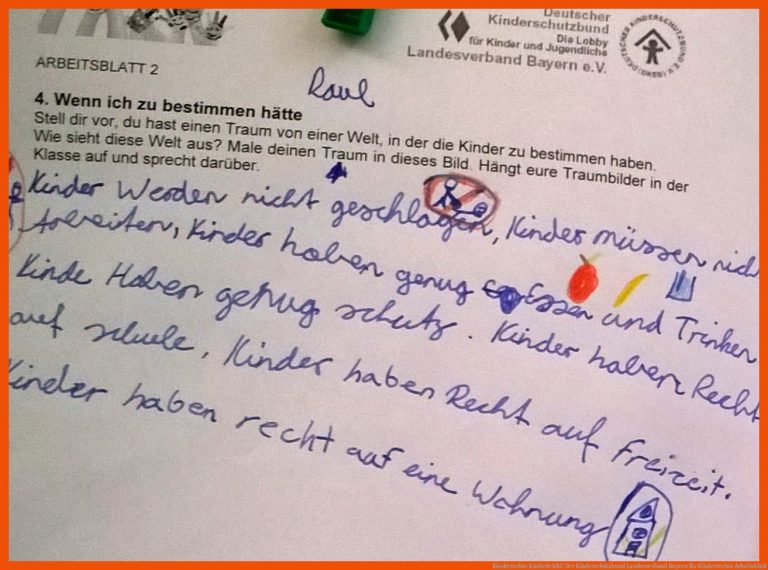 Deutscher
Kinderschutzbund
Die Lobby
für Kinder und Jugendliche
Landesverband Bayern e.V.
ARBEITSBLATT 2
Raul
4. Wenn ich zu bestimmen hätte
Stell dir vor, du hast einen Traum von einer Welt, in der die Kinder zu bestimmen haben.
Wie sieht diese Welt aus? Male deinen Traum in dieses Bild. Hängt eure Traumbilder in der
Klasse auf und sprecht darüber.
Kinder Werden nicht geschlagen, Kinder müssen nich
Arbeiten, Kinder haben genug Essen und Trinken
Kinde Haben genug schutz. Kinder haben Recht
auf schule, Kinder haben Recht auf Freizeit.
Kinder haben recht auf eine Wohnung
Kinderrechte Kinderleicht! Der Kinderschutzbund Landesverband Bayern für Kinderrechte Arbeitsblatt